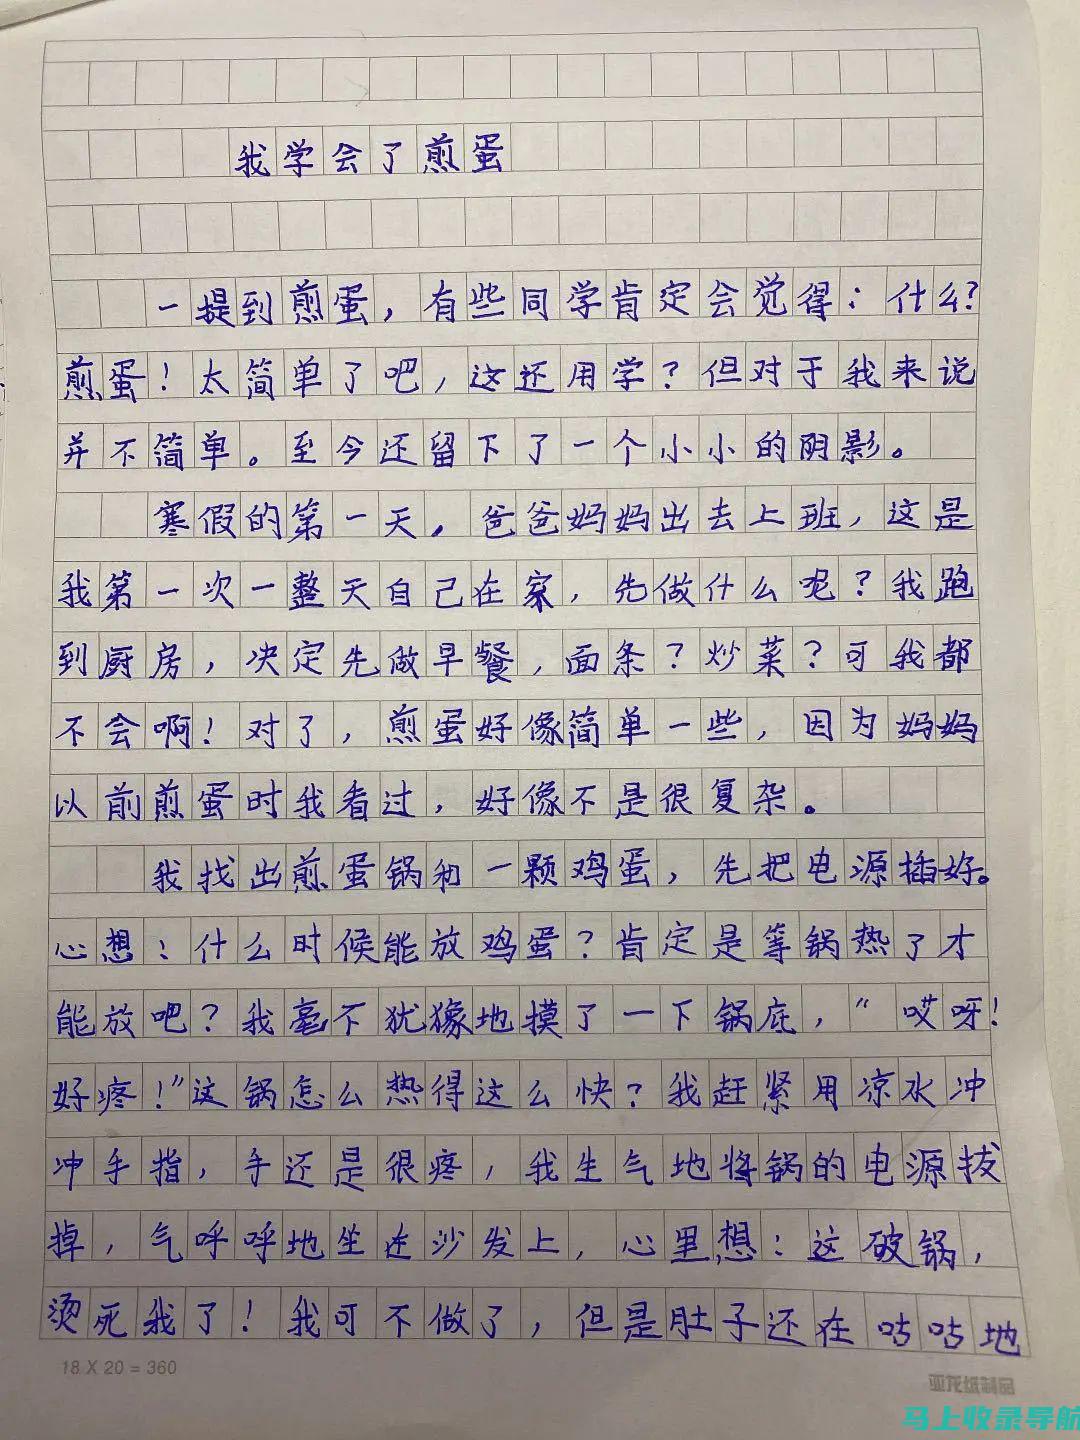 我学会了煎蛋
一提到煎蛋，有些同学肯定会觉得：什么？
煎蛋！太简单了吧，这还用学？但对于我来说
并不简单。至今还留下了一个小小的阴影。
寒假的第一天，爸爸妈妈出去上班，这是
我第一次一整天自己在家，先做什么呢？我跑
到厨房，决定先做早餐，面条？炒菜？可我都
不会啊！对了，煎蛋好像简单一些，因为妈妈
以前煎蛋时我看过，好像不是很复杂。
我找出煎蛋锅和一颗鸡蛋，先把电源插好。
心想：什么时候能放鸡蛋？肯定是等锅热了才
能放吧？我毫不犹豫地摸了一下锅底，“哎呀！
好疼！”这锅怎么热得这么快？我赶紧用凉水冲
冲手指，手还是很疼，我生气地将锅的电源拔
掉，气呼呼地坐在沙发上，心里想：这破锅，
烫死我了！我可不做了，但是肚子还在咕咕地
18 X 20 = 360
亚龙纸制品
马上收录导航